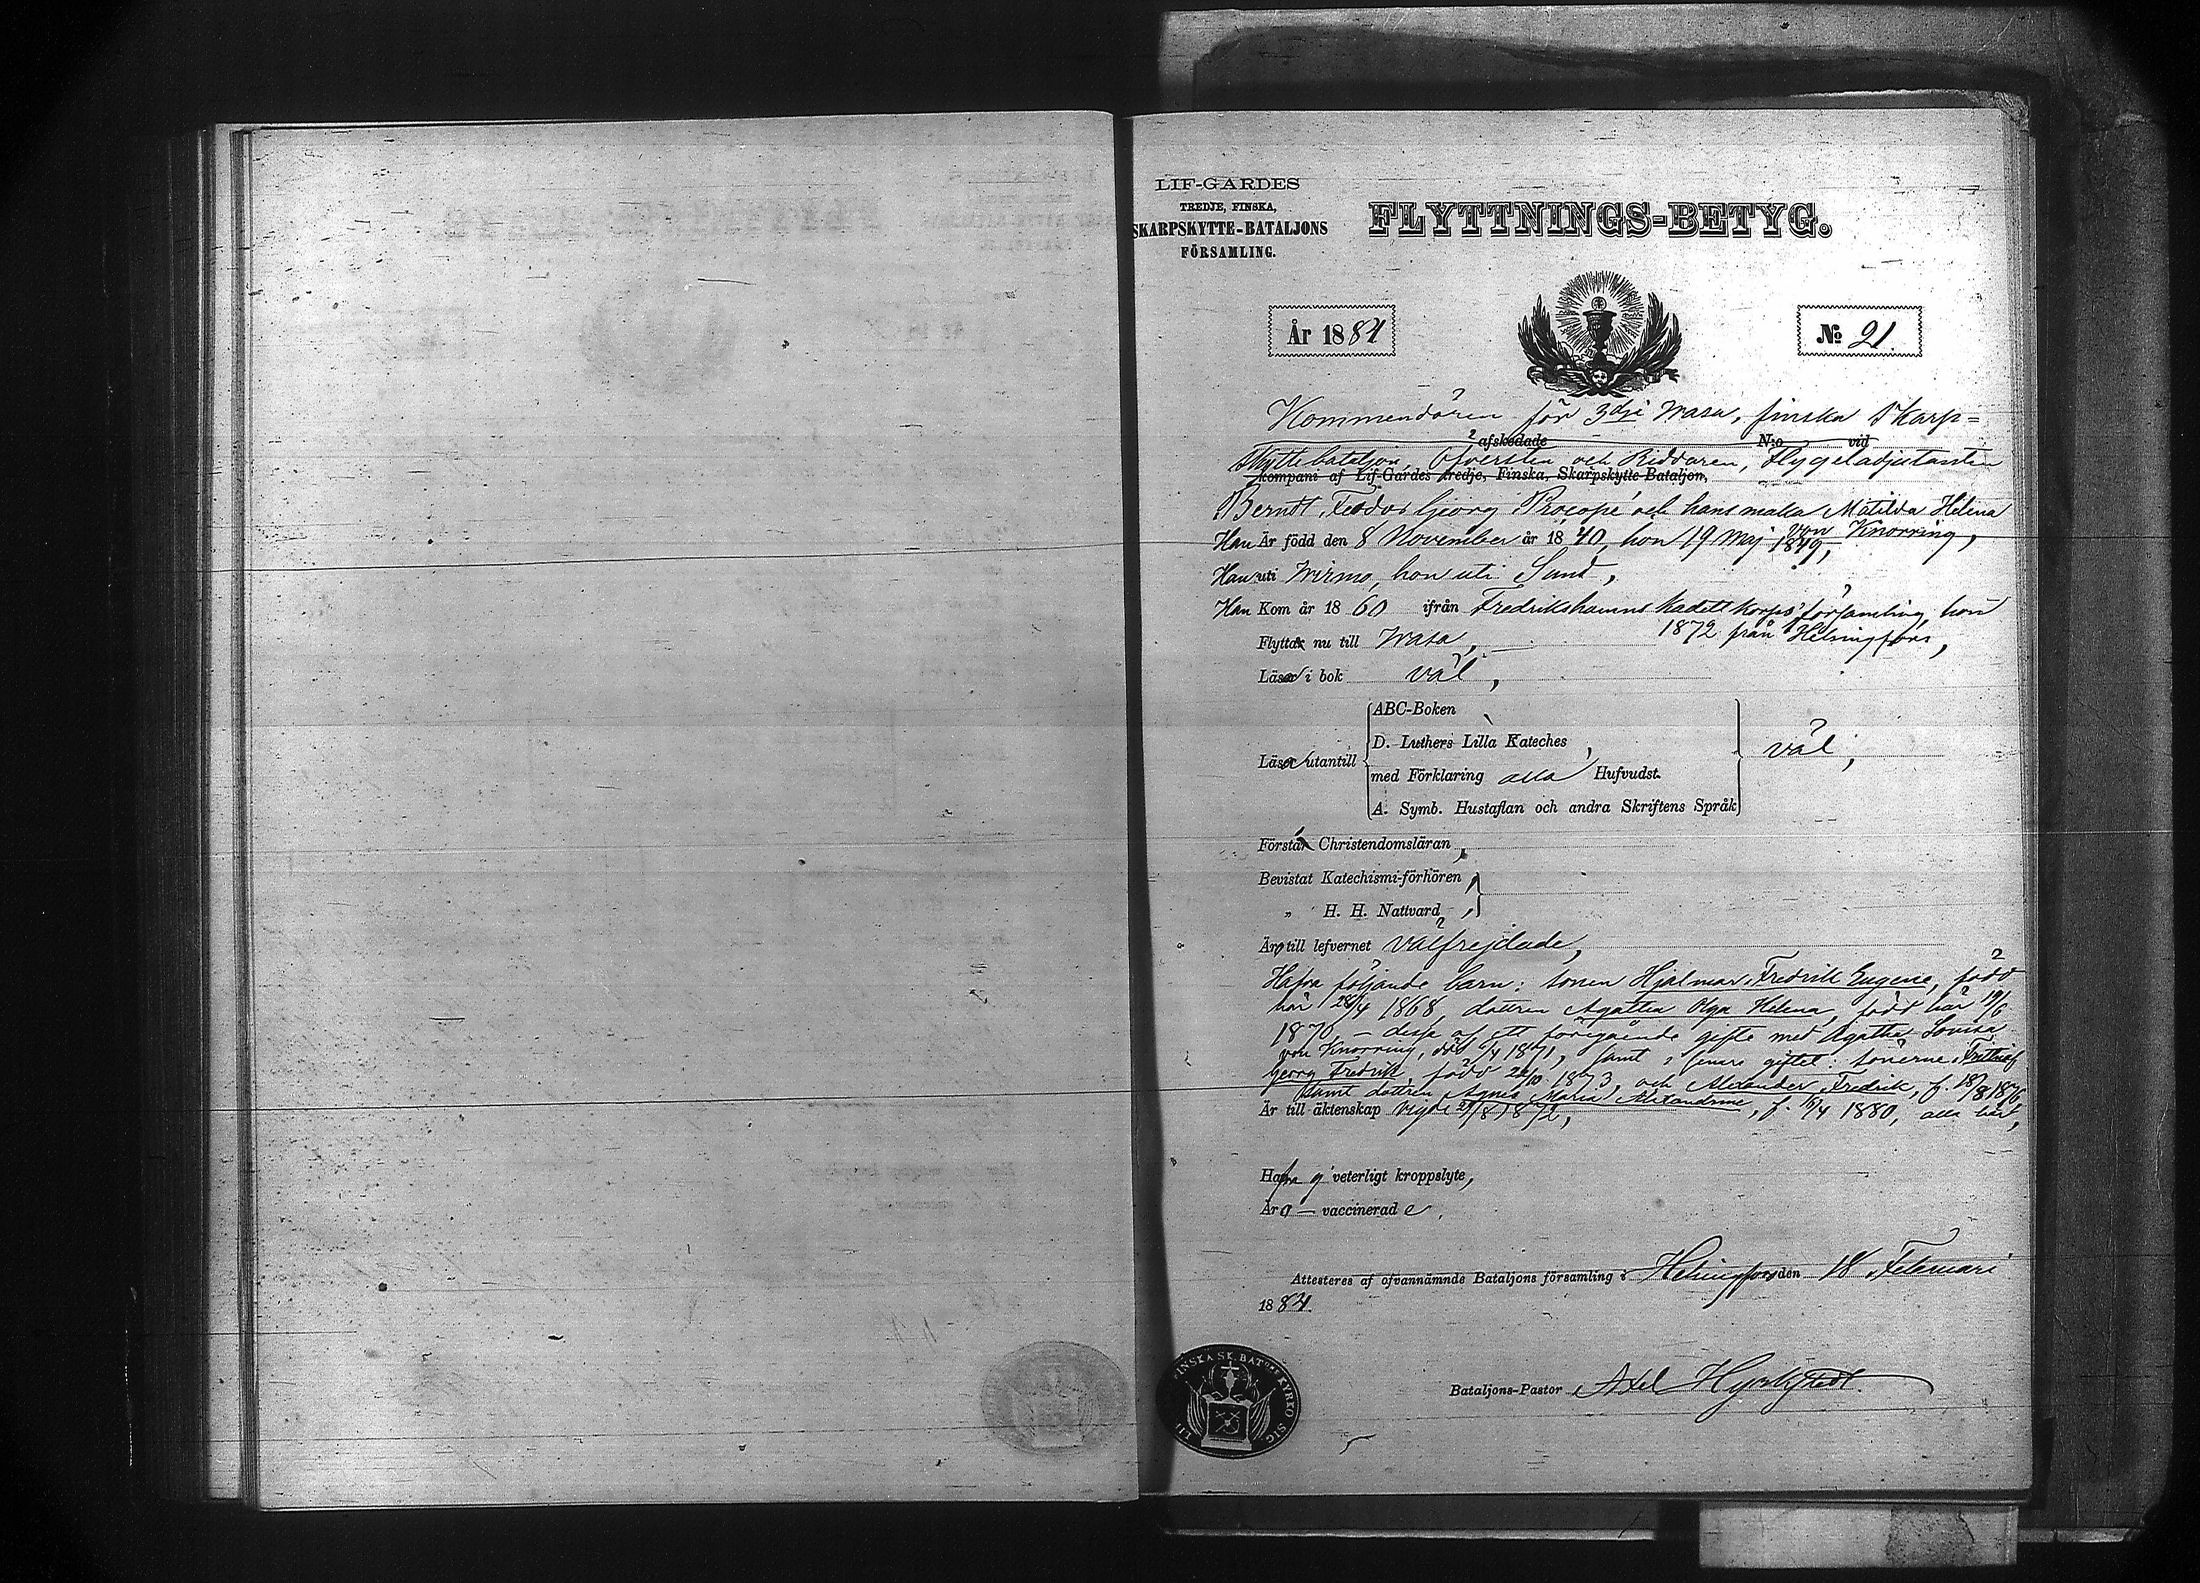 LIF-GARDES
TREDJE, FINSKA,
SKARPSKYTTE-BATALJONS
FÖRSAMLING.
FLYTTNINGS-BETYG.
År 1884
No 21.
Kommendören för 3dje Wasa, finska Skarp=
afskedade N:o vid
skyttebataljon, Öfversten och Riddaren, Flygeladjutanten
kompani af Lif-Gardes tredje, Finska, Skarpskytte-Bataljon,
Berndt Feodor Georg Procopé och hans maka Matilda Helena
von Knorring,
Han Är född den 8 November år 1840, hon 19 Maj 1849,
Han uti Wirmo, hon uti Sund,
Han Kom år 1860 ifrån Fredrikshamns Kadettkorps' församling, hon
1872 från Helsingfors,
Flytta nu till Wasa,
Läsa i bok väl,
ABC-Boken
D. Luthers Lilla Kateches,
Läsa utantill väl,
med Förklaring alla Hufvudst.
A. Symb. Hustaflan och andra Skriftens Språk
Förstå Christendomsläran,
Bevistat Katechismi-förhören,
" H. H. Nattvard,
Äro till lefvernet välfrejdade,
Hafva följande barn: sonen Hjalmar Fredrik Eugene, född
här 28/4 1868, dottren Agatha Olga Helena, född här 19/6
1870 – dessa af ett föregående gifte med Agatha Lovisa
von Knorring, död /4 1871, samt i senare giftet: sönerne Frithiof
Georg Fredrik, född 2/10 1873, och Alexander Fredrik, f. 18/8 1876,
samt dottren Agnes Maria Alexandrine, f. 16/4 1880, alla här,
Är till äktenskap vigde 29/8 1872,
Hafva ej veterligt kroppslyte,
Äro – vaccinerade.
Attesteres af ofvannämnde Bataljons församling i Helsingfors den 18 Februari
1884.
Bataljons-Pastor Axel Hyrkstedt.
FINSKA SK. BATNS KYRKO SIG